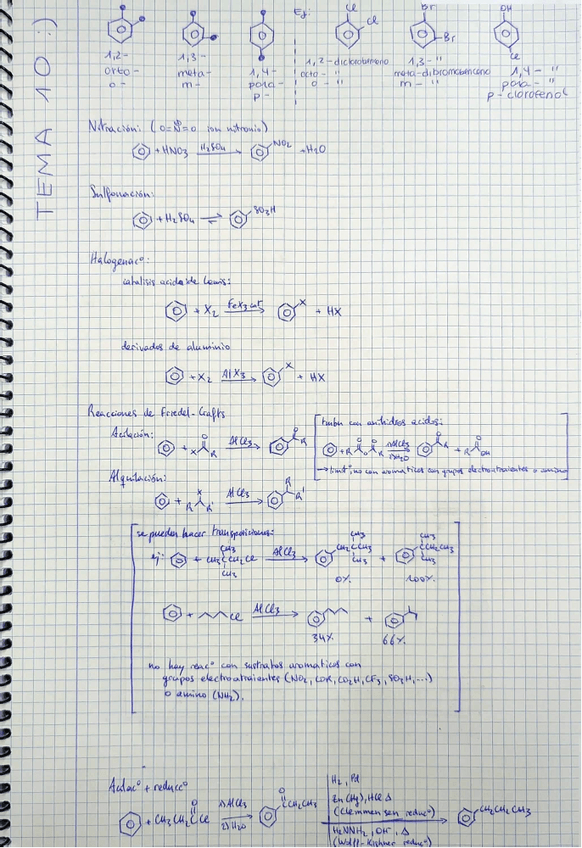 TEMA 10 :)
Ej:
Cl
Cl
Br
Br
OH
Cl
1,2-
orto-
o-
1,3-
meta-
m-
1,4-
para-
p-
1,2-diclorobenceno
orto- "
o- "
1,3- "
meta-dibromobenceno
m- "
1,4- "
para- "
p-clorofenol
Nitración: (O=N=O ion nitronio)
+ HNO3 H2SO4 NO2 + H2O
Sulfonación:
+ H2SO4 SO3H
Halogenac°:
catalisis acida de Lewis:
+ X2 FeX3 cat X + HX
derivados de aluminio
+ X2 AlX3 X + HX
Reacciones de Friedel-Crafts
Acilación:
+ X O R AlCl3 O R
tmbn con anhidros acidos:
+ R O O O R 1) AlCl3 2) H2O O R + R O OH
→ limit°, no con aromaticos con grupos electroatraientes o amino
Alquilación:
+ R X R' AlCl3 R R'
se pueden hacer transposiciones:
ej: + CH3 CH3CCH2Cl CH3 AlCl3 CH3 CH2CCH3 CH3 + CH3 CCH2CH3 CH3
0% 100%
+ Cl AlCl3 +
34% 66%
no hay reac° con sustratos aromaticos con
grupos electroatraientes (NO2, COR, CO2H, CF3, SO3H, ...)
o amino (NH2).
Acilac° + reducc°
+ CH3CH2CCl O 1) AlCl3 2) H2O O CCH2CH3
H2, Pd
Zn(Hg), HCl Δ
(Clemmensen reduc°)
H2NNH2, OH-, Δ
(Wolff-Kishner reduc°)
CH2CH2CH3